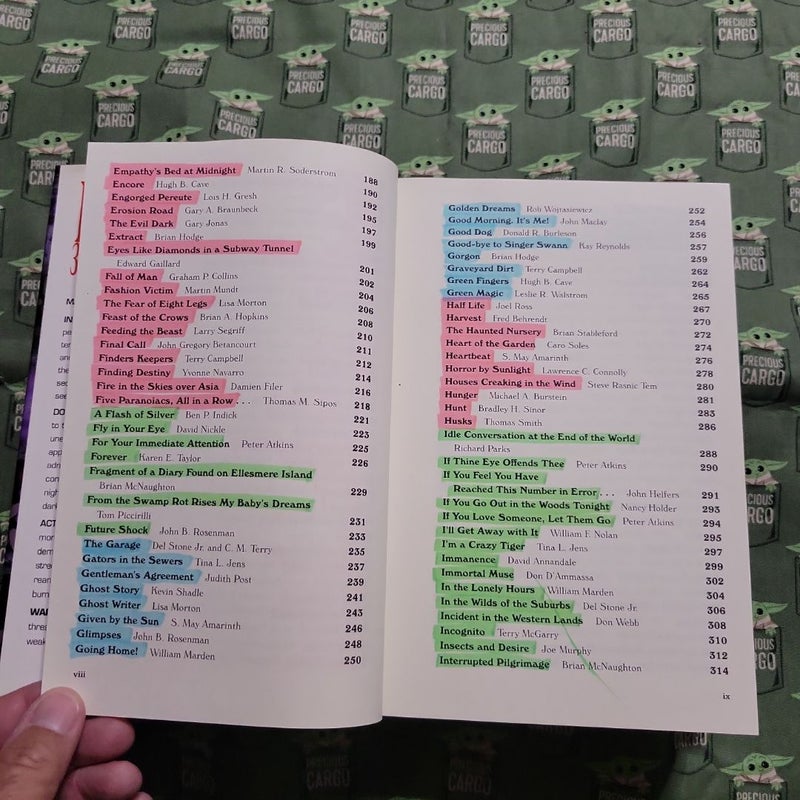 Empathy's Bed at Midnight Martin R. Soderstrom 188
Encore Hugh B. Cave 190
Engorged Pereute Lois H. Gresh 192
Erosion Road Gary A. Braunbeck 195
The Evil Dark Gary Jonas 197
Extract Brian Hodge 199
Eyes Like Diamonds in a Subway Tunnel
Edward Gaillard 201
Fall of Man Graham P. Collins 202
Fashion Victim Martin Mundt 204
The Fear of Eight Legs Lisa Morton 206
Feast of the Crows Brian A. Hopkins 208
Feeding the Beast Larry Segriff 210
Final Call John Gregory Betancourt 211
Finders Keepers Terry Campbell 212
Finding Destiny Yvonne Navarro 214
Fire in the Skies over Asia Damien Filer 216
Five Paranoiacs, All in a Row . . . Thomas M. Sipos 218
A Flash of Silver Ben P. Indick 221
Fly in Your Eye David Nickle 223
For Your Immediate Attention Peter Atkins 225
Forever Karen E. Taylor 226
Fragment of a Diary Found on Ellesmere Island
Brian McNaughton 229
From the Swamp Rot Rises My Baby's Dreams
Tom Piccirilli 231
Future Shock John B. Rosenman 233
The Garage Del Stone Jr. and C. M. Terry 235
Gators in the Sewers Tina L. Jens 237
Gentleman's Agreement Judith Post 239
Ghost Story Kevin Shadle 241
Ghost Writer Lisa Morton 243
Given by the Sun S. May Amarinth 246
Glimpses John B. Rosenman 248
Going Home! William Marden 250
viii
Golden Dreams Rob Wojtasiewicz 252
Good Morning. It's Me! John Maclay 254
Good Dog Donald R. Burleson 256
Good-bye to Singer Swann Kay Reynolds 257
Gorgon Brian Hodge 259
Graveyard Dirt Terry Campbell 262
Green Fingers Hugh B. Cave 264
Green Magic Leslie R. Walstrom 265
Half Life Joel Ross 267
Harvest Fred Behrendt 270
The Haunted Nursery Brian Stableford 272
Heart of the Garden Caro Soles 274
Heartbeat S. May Amarinth 276
Horror by Sunlight Lawrence C. Connolly 278
Houses Creaking in the Wind Steve Rasnic Tem 280
Hunger Michael A. Burstein 281
Hunt Bradley H. Sinor 283
Husks Thomas Smith 286
Idle Conversation at the End of the World
Richard Parks 288
If Thine Eye Offends Thee Peter Atkins 290
If You Feel You Have
Reached This Number in Error . . . John Heifers 291
If You Go Out in the Woods Tonight Nancy Holder 293
If You Love Someone, Let Them Go Peter Atkins 294
I'll Get Away with It William F. Nolan 295
I'm a Crazy Tiger Tina L. Jens 297
Immanence David Annandale 299
Immortal Muse Don D'Ammassa 302
In the Lonely Hours William Marden 304
In the Wilds of the Suburbs Del Stone Jr. 306
Incident in the Western Lands Don Webb 308
Incognito Terry McGarry 310
Insects and Desire Joe Murphy 312
Interrupted Pilgrimage Brian McNaughton 314
ix
PRECIOUS
CARGO